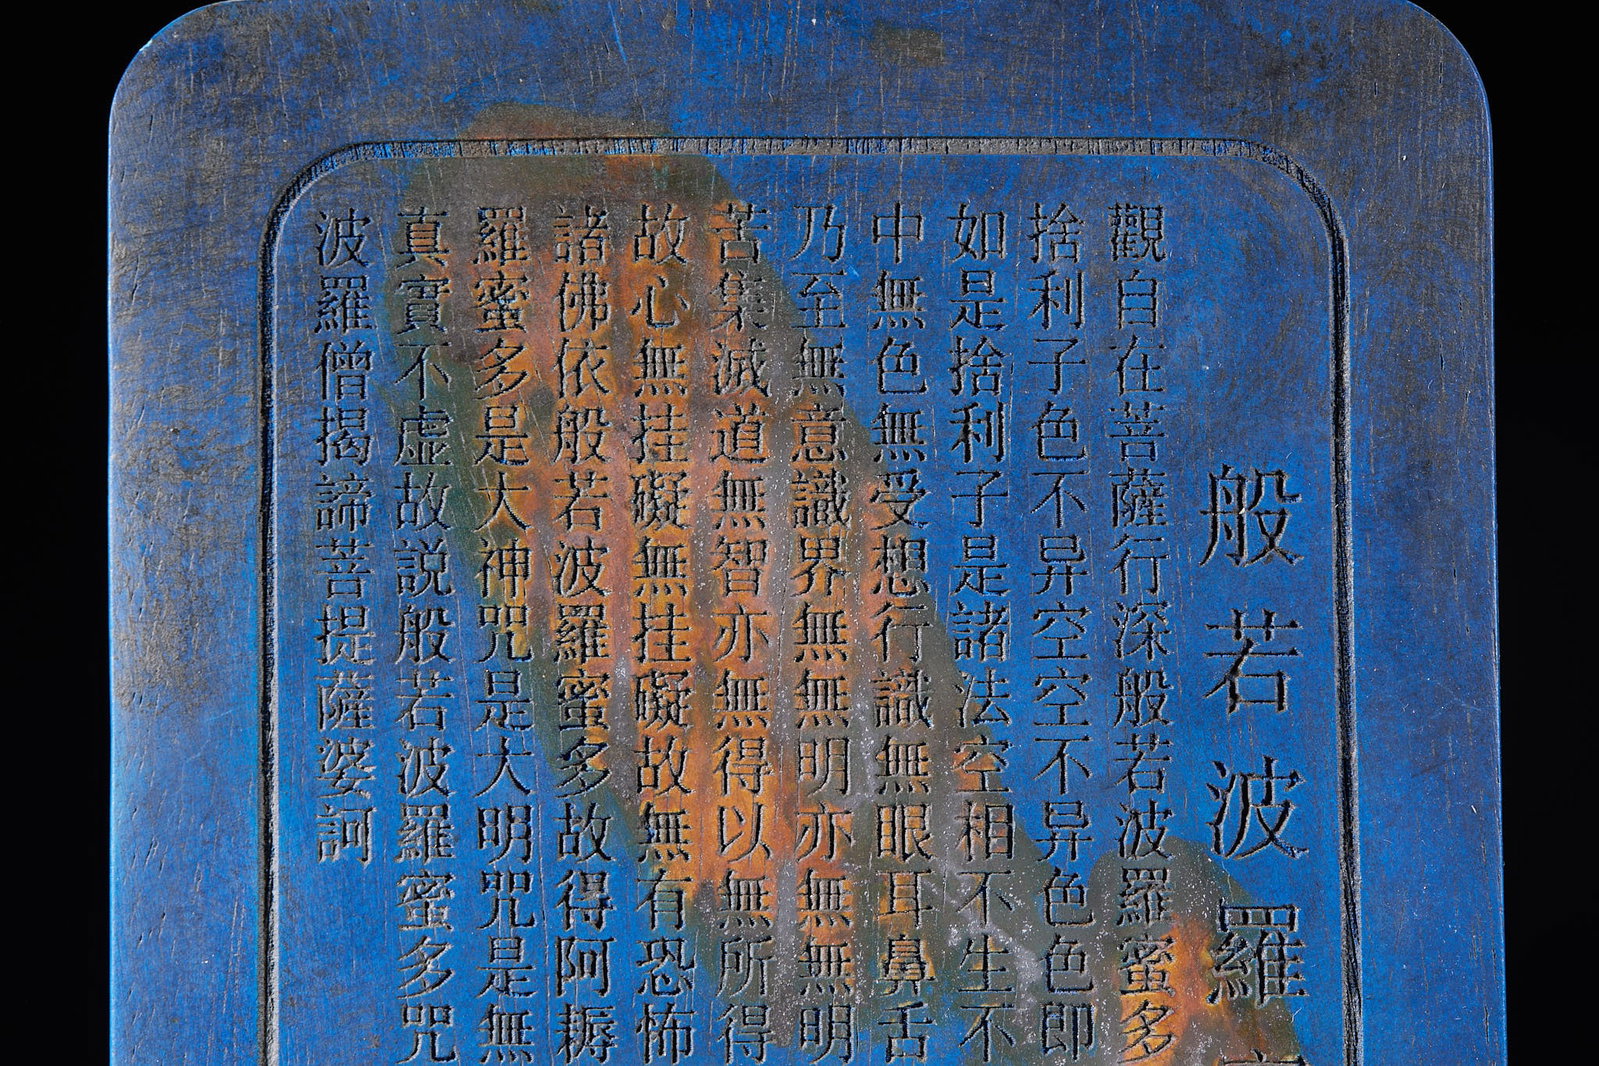 般若波羅
觀自在菩薩行深般若波羅蜜多
捨利子色不异空空不异色色即
如是捨利子是諸法空相不生不
中無色無受想行識無眼耳鼻舌
乃至無意識界無無明亦無無明
苦集滅道無智亦無得以無所得
故心無挂礙無挂礙故無有恐怖
諸佛依般若波羅蜜多故得阿耨
羅蜜多是大神咒是大明咒是無
真實不虛故説般若波羅蜜多咒
波羅僧揭諦菩提薩婆訶